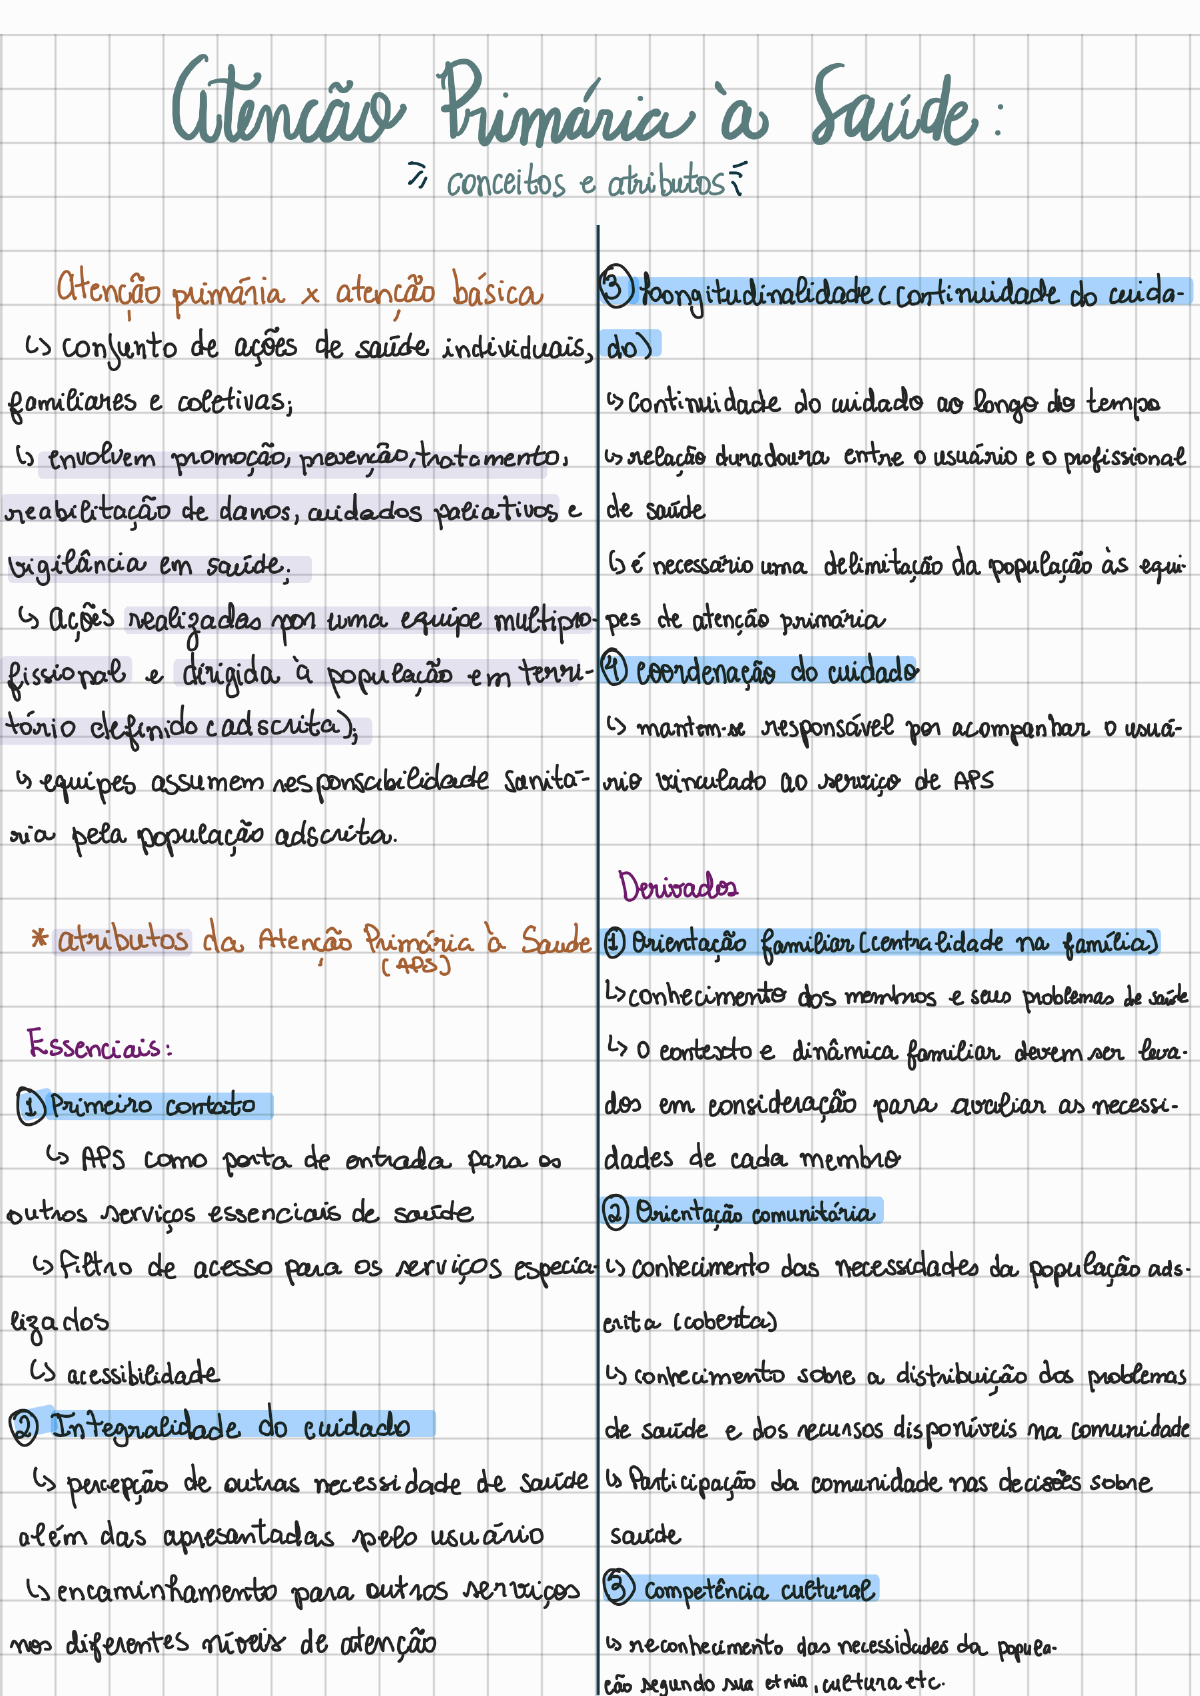 Atenção Primária à Saúde:
conceitos e atributos
Atenção primária x atenção básica
↳ conjunto de ações de saúde individuais,
familiares e coletivas;
↳ envolvem promoção, prevenção, tratamento,
reabilitação de danos, cuidados paliativos e
vigilância em saúde;
↳ Ações realizadas por uma equipe multipro-
fissional e dirigida à população em terri-
tório definido (adscrita);
↳ equipes assumem responsabilidade sanitá-
ria pela população adscrita.
* atributos da Atenção Primária à Saude
(APS)
Essenciais:
① Primeiro contato
↳ APS como porta de entrada para os
outros serviços essenciais de saúde
↳ filtro de acesso para os serviços especia-
lizados
↳ acessibilidade
② Integralidade do cuidado
↳ percepção de outras necessidade de saúde
além das apresantadas pelo usuário
↳ encaminhamento para outros serviços
nos diferentes níveis de atenção
③ Longitudinalidade (continuidade do cuida-
do)
↳ continuidade do cuidado ao longo do tempo
↳ relação duradoura entre o usuário e o profissional
de saúde
↳ é necessário uma delimitação da população às equi-
pes de atenção primária
④ coordenação do cuidado
↳ mantem-se responsável por acompanhar o usuá-
rio vinculado ao serviço de APS
Derivados
① Orientação familiar (centralidade na família)
↳ conhecimento dos membros e seus problemas de saúde
↳ O contexto e dinâmica familiar devem ser leva-
dos em consideração para avaliar as necessi-
dades de cada membro
② Orientação comunitária
↳ conhecimento das necessidades da população ads-
crita (coberta)
↳ conhecimento sobre a distribuição dos problemas
de saúde e dos recursos disponíveis na comunidade
↳ Participação da comunidade nas decisões sobre
saúde
③ competência cultural
↳ reconhecimento das necessidades da popula-
ção segundo sua etnia, cultura etc.